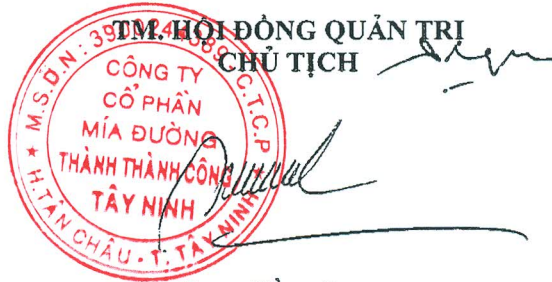 TM. HỘI ĐỒNG QUẢN TRỊ
CHỦ TỊCH
M.S.D.N: C.T.C.P
CÔNG TY
CỔ PHẦN
MÍA ĐƯỜNG
THÀNH THÀNH CÔNG
TÂY NINH
H.TÂN CHÂU - T. TÂY NINH